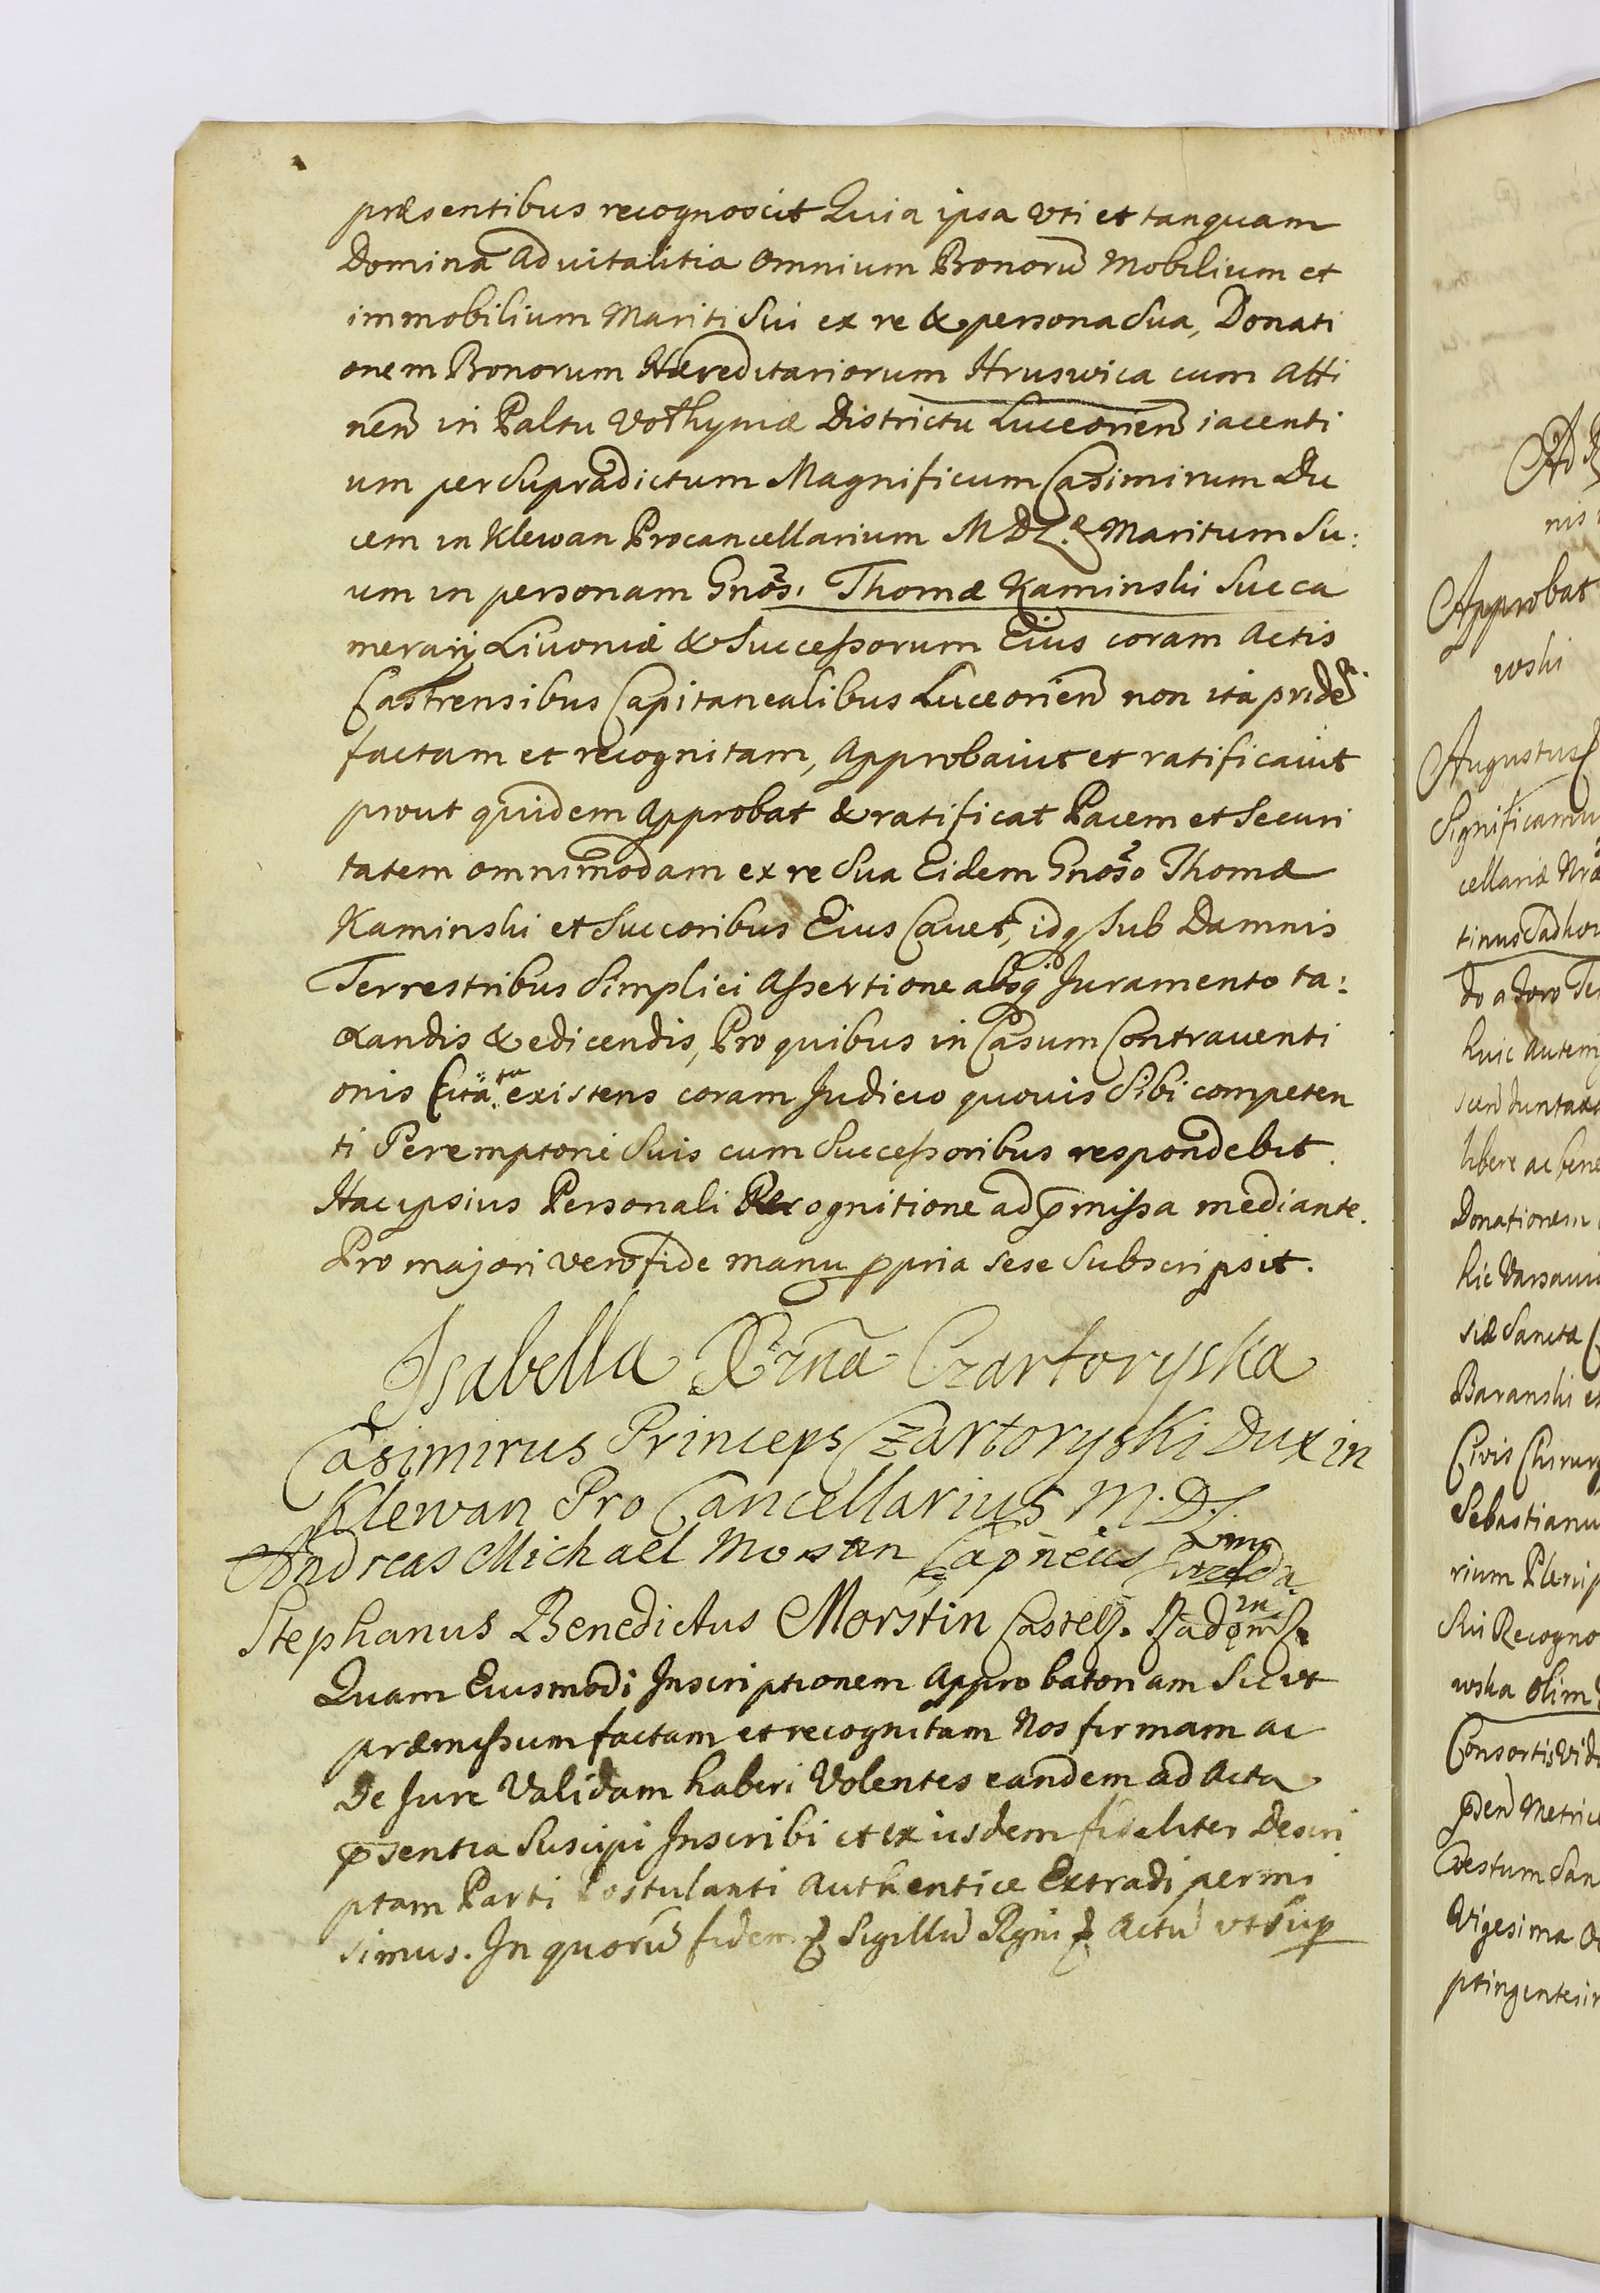 præsentibus recognoscit Quia ipsa Uti et tanquam
Domina Aduitalitia Omnium Bonorũ Mobilium et
immobilium Mariti Sui ex re & persona Sua, Donati
onem Bonorum Hæreditariorum Hruswica cum Atti
neñ in Paltu Volhyniæ Districtu Luceorieñ iacenti
um per Supradictum Magnificum Casimirum Du
cem in Klewan Procancellarium M D L. Maritum Su:
um in personam Gnosi. Thomæ Kaminski Succa
merarij Liuoniæ & Successorum Eius coram Actis
Castrensibus Capitanealibus Luceorieñ non ita pridẽ
factam et recognitam, Approbauit et ratificauit
prout quidem Approbat & ratificat Pacem et Securi
tatem omnimodam ex re Sua Eidem Gnoso Thomæ
Kaminski et Succoribus Eius Cauet, idq Sub Damnis
Terrestribus Simplici Assertione absq Juramento ta:
xandis & edicendis, Pro quibus in Casum Contrauenti
onis Cita ta existens coram Judicio quouis Sibi competen
ti Peremptorie Suis cum Successoribus respondebit.
Hac ipsius Personali Recognitione ad pmissa mediante.
Pro majori vero fide manu ppria sese Subscripsit.
Isabella Xżna Czartoryska
Casimirus Princeps Czartoryski Dux in
Klewan Pro Cancellarius M. D L
Andreas Michael Capneus
Stephanus Benedictus Morstin Castell. Radom
Quam Eiusmodi Inscriptionem Approbatoriam Sicut
præmissum factam et recognitam Nos firmam ac
De Jure Validam haberi Volentes eandem ad Acta
psentia Suscipi Inscribi et ex iisdem fideliter Descri
ptam Parti Postulanti Authentice Extradi permi
simus. In quorũ fidem Sigillũ Regni Actũ ut Sup
Approbat
wski
Augustus
Significamu
cellariæ Nræ
do a foro
huic Autem
libere ac bene
Donationem
hic Varsauiæ
siæ Sancta
Baranski et
Civis Chirurg
Sebastianu
Sui Recogno
wska Olim
Consortis Vid
Vigesima